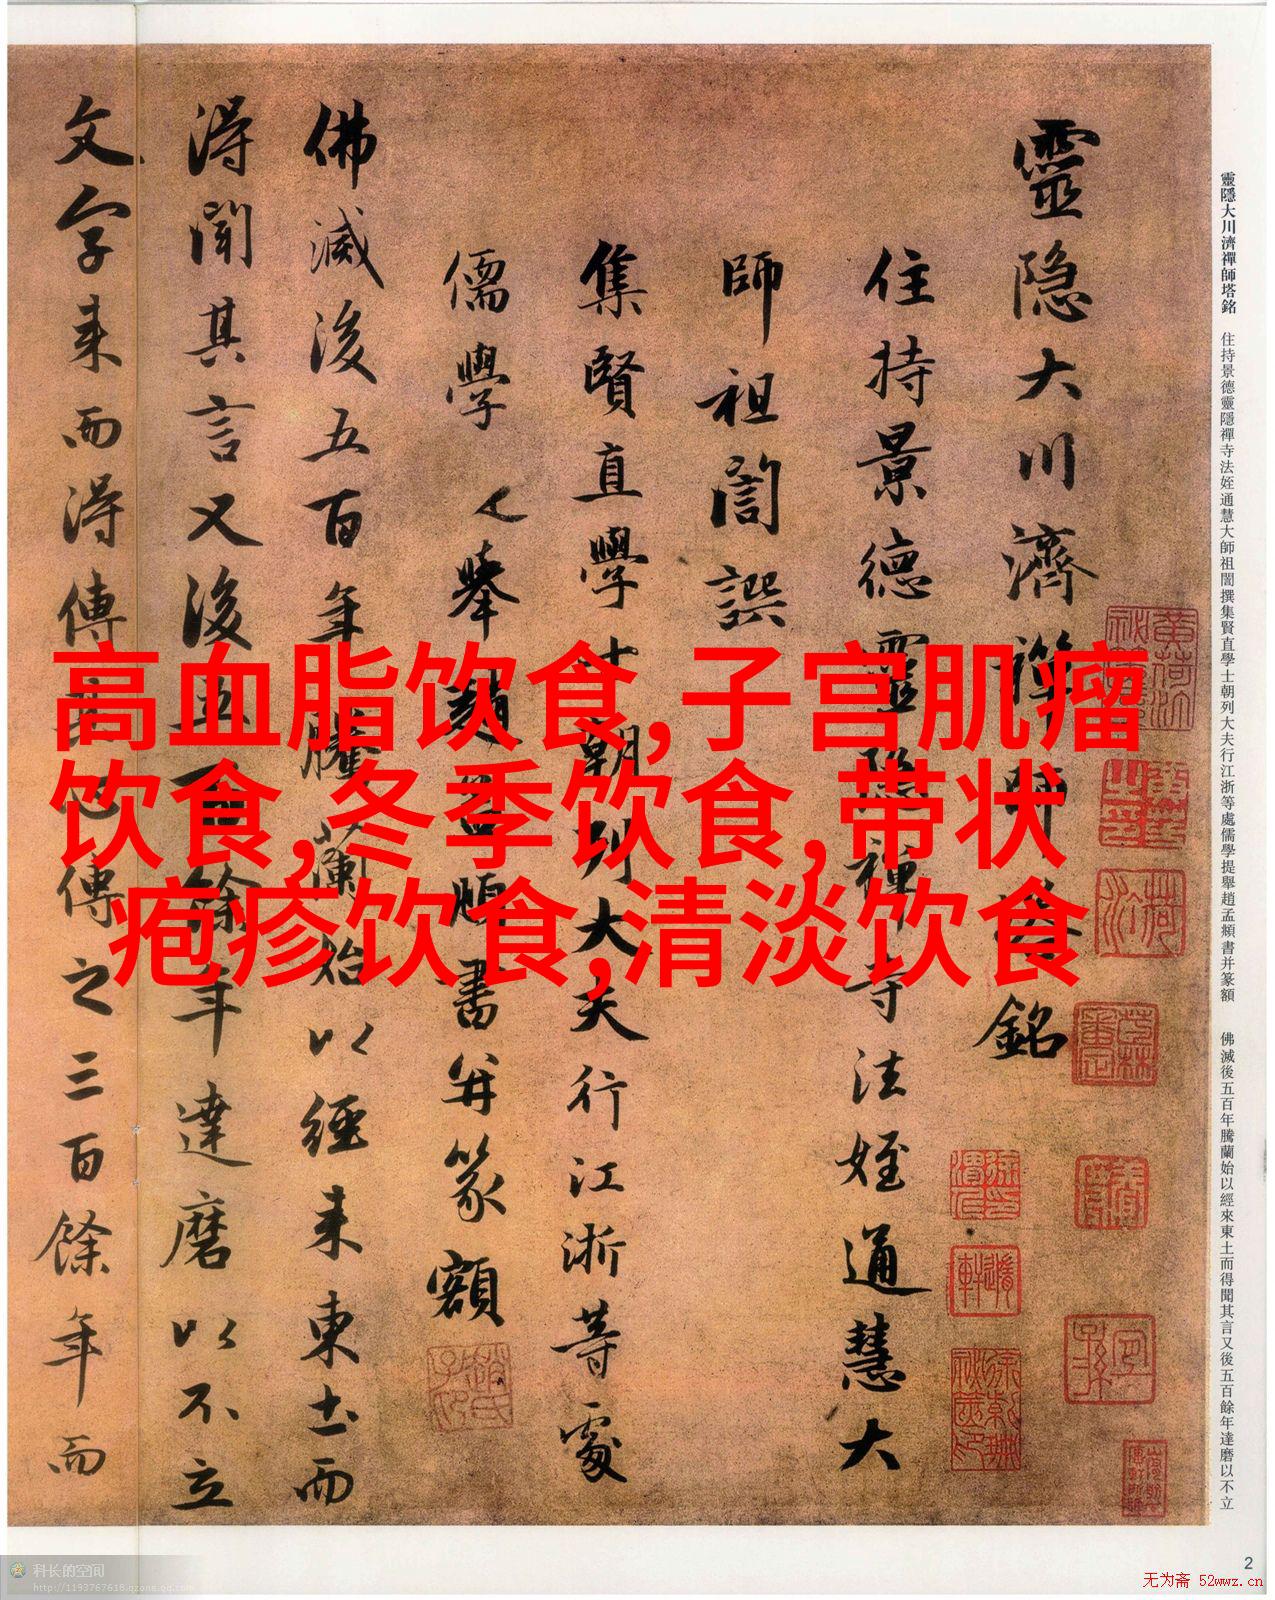 靈隱大川濟禪師塔銘
住持景德靈隱禪寺法姪通慧大
師祖誾譔
集賢直學士朝列大夫行江浙等處
儒學提舉趙孟頫書并篆額
佛滅後五百年騰蘭始以經来東土而
得聞其言又後五百餘年達磨以不立
文字来而得傳其心傳之三百餘年而
靈隱大川濟禪師塔銘 住持景德靈隱禪寺法姪通慧大師祖誾撰集賢直學士朝列大夫行江浙等處儒學提舉趙孟頫書并篆額 佛滅後五百年騰蘭始以經來東土而得聞其言又後五百餘年達磨以不立
高血脂饮食,子宫肌瘤
饮食,冬季饮食,带状
疱疹饮食,清淡饮食
2
科长的空间
http://1193767618.qzone.qq.com
无为斋 52wwz.cn